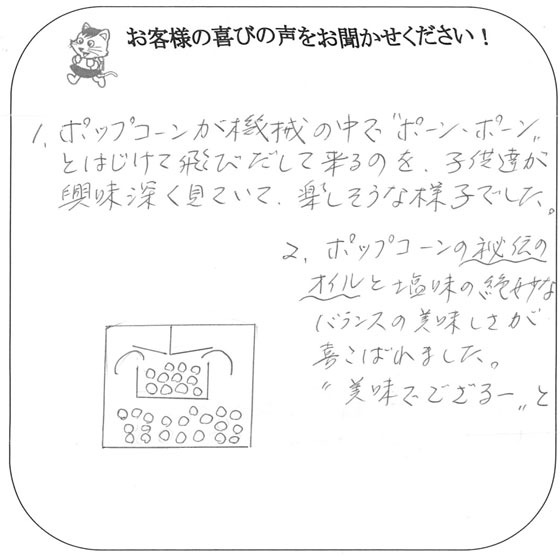 お客様の喜びの声をお聞かせください！
1、ポップコーンが機械の中で"ポーン、ポーン"
とはじけて飛びだして来るのを、子供達が
興味深く見ていて、楽しそうな様子でした。
2、ポップコーンの秘伝の
オイルと塩味の絶妙な
バランスの美味しさが
喜こばれました。
"美味でござるー"と